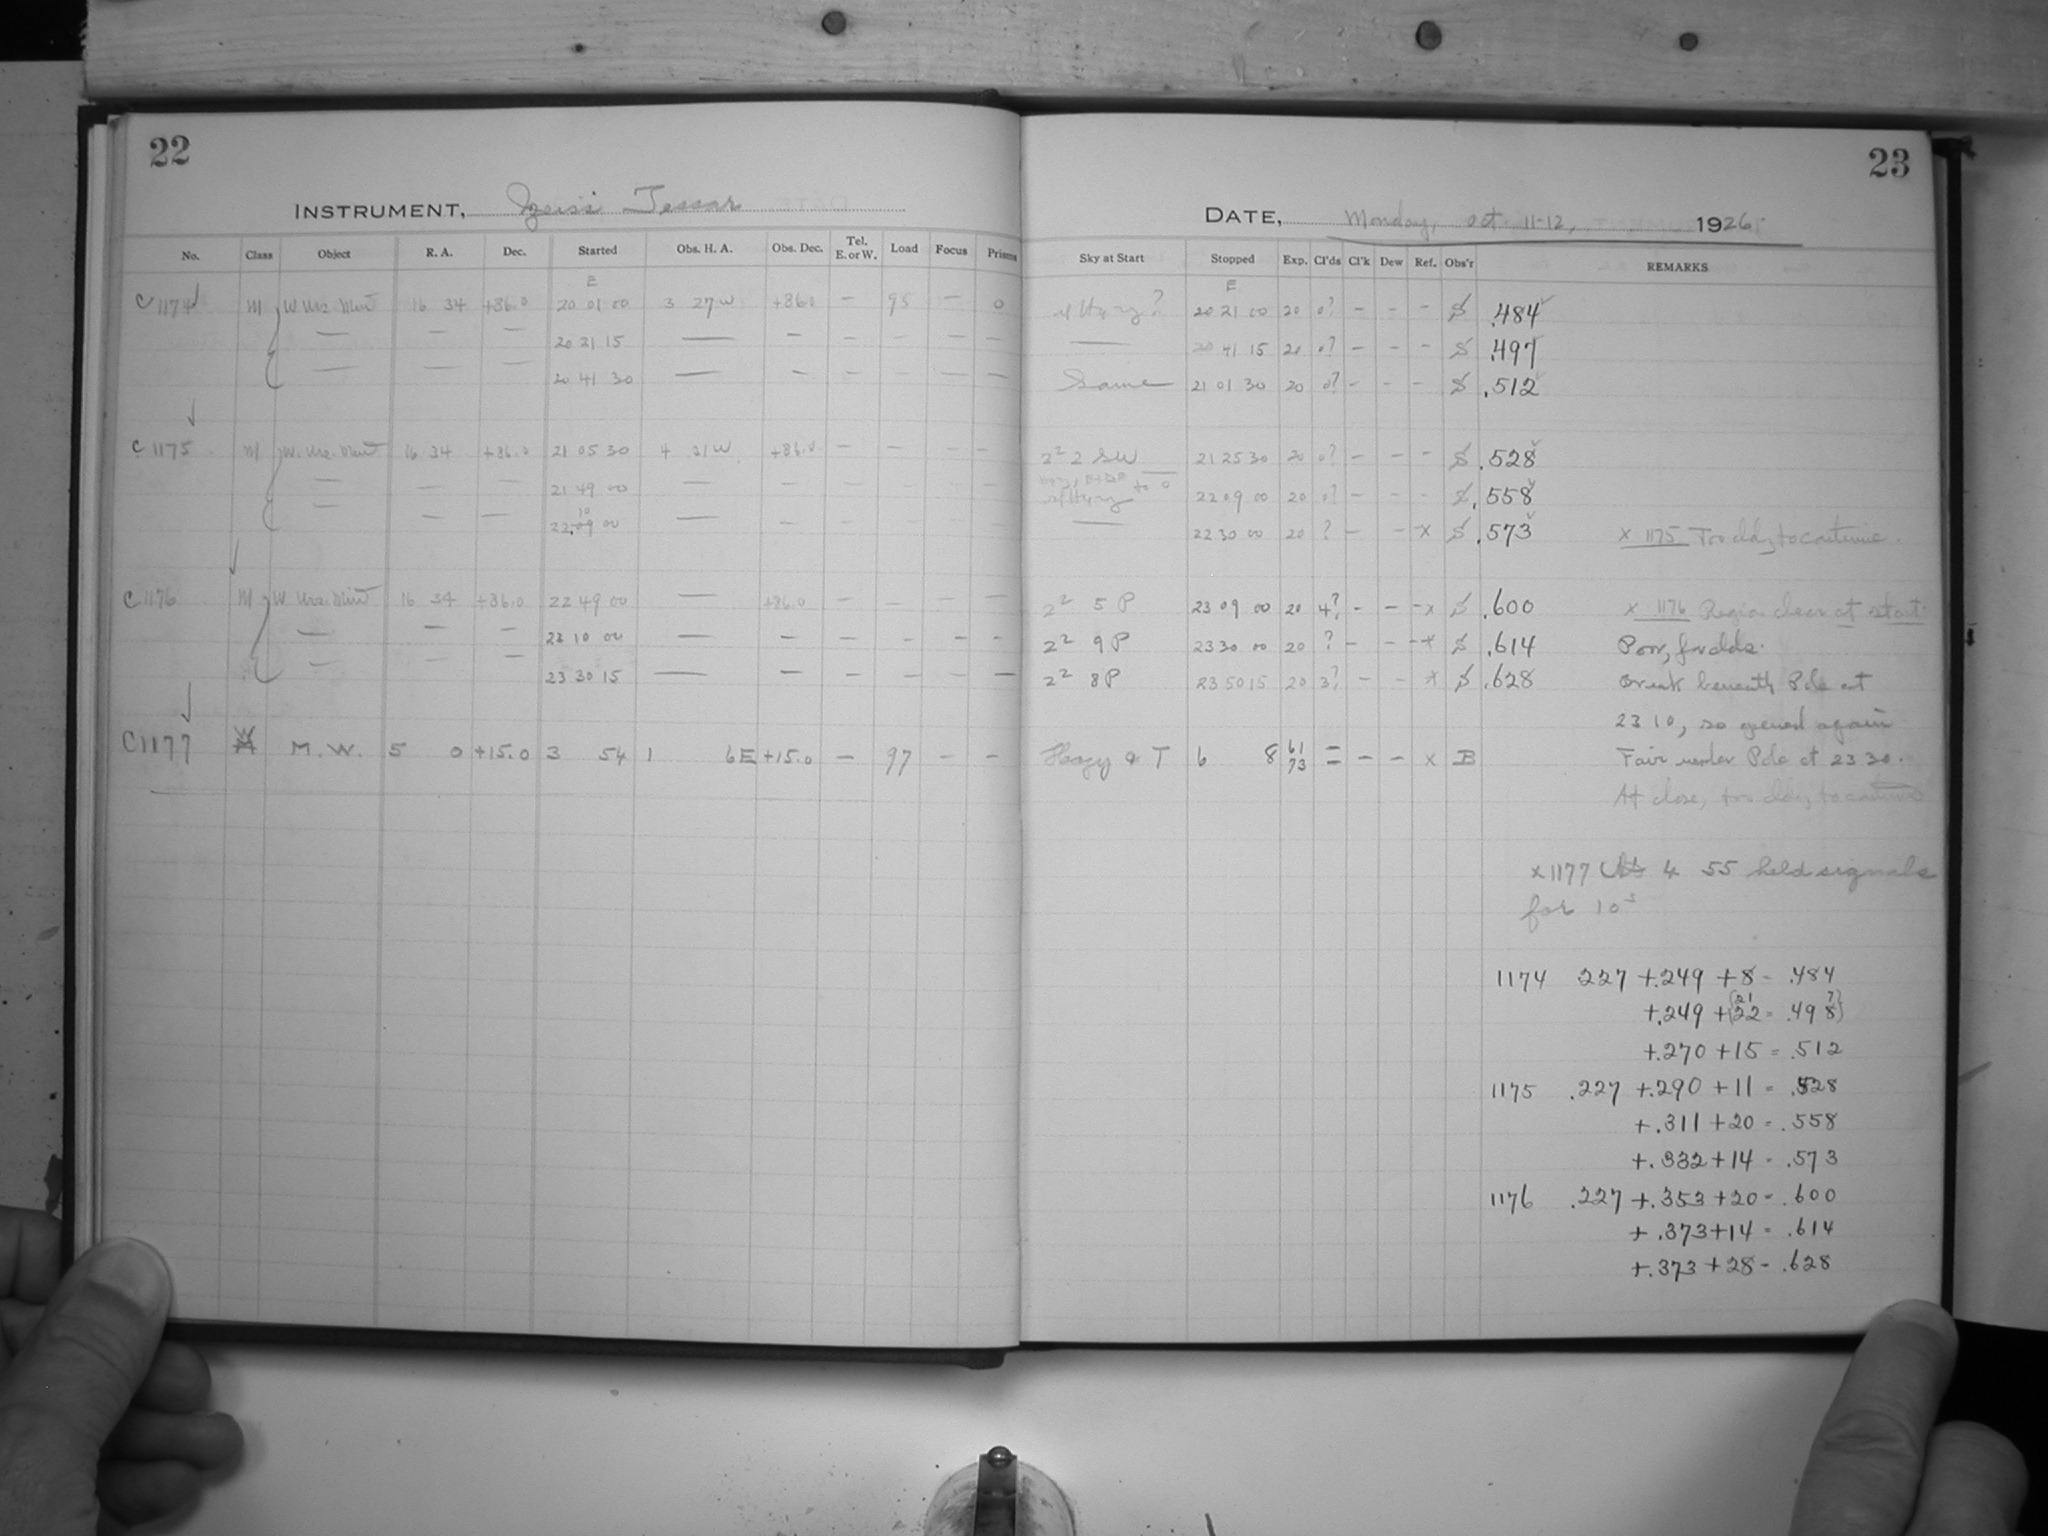 22
INSTRUMENT, Zeiss Tessar
No. Class Object R. A. Dec. Started Obs. H. A. Obs. Dec. Tel. E. or W. Load Focus Prisms
E
C 1174 M W Urs. Min 16 34 +86.0 20 01 00 3 27 W +86.0 — 95 — 0
— — — 20 21 15 — — — — — —
— — — 20 41 30 — — — — — —
C 1175 M W. Urs. Min 16 34 +86.0 21 05 30 4 31 W +86.0 — — — —
— — — 21 49 00 — — — — — —
— — — 22 10 00 — — — — — —
C 1176 M W Urs. Min 16 34 +86.0 22 49 00 — +86.0 — — — —
— — — 23 10 00 — — — — — —
— — — 23 30 15 — — — — — —
C1177 M. W. 5 0 +15.0 3 54 1 6E +15.0 — 97 — —
23
DATE, Monday, Oct. 11-12, 1926
Sky at Start Stopped Exp. Cl'ds Cl'k Dew Ref. Obs'r REMARKS
E
sl Hazy? 20 21 00 20 0? - - - S .484
— 20 41 15 20 0? - - - S .497
Same 21 01 30 20 0? - - - S .512
2² 2 SW 21 25 30 20 0? - - - S .528
sl Hazy to 0 22 09 00 20 0? - - - S .558
— 22 30 00 20 ? - - -x S .573 x 1175 Too cldy to continue.
2² 5 P 23 09 00 20 4? - - -x S .600 x 1176 Region clear at start
2² 9 P 23 30 00 20 ? - - -x S .614 Poor, few clds.
2² 8 P 23 50 15 20 3? - - x S .628 Break beneath Pole at
23 10, so opened again
Hazy & T 6 8 61 73 = - - x B Fair under Pole at 23 30.
At close, too cldy to continue
x1177 At 4 55 held signals
for 10ˢ
1174 .227 +.249 +8 = .484
+.249 +{21 22 = .49 7 8}
+.270 +15 = .512
1175 .227 +.290 +11 = .528
+.311 +20 = .558
+.332 +14 = .573
1176 .227 +.353 +20 = .600
+.373 +14 = .614
+.373 +28 = .628